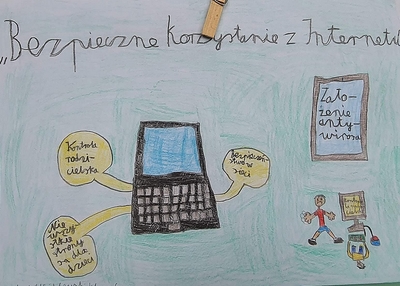 „Bezpieczne korzystanie z Internetu
Kontrola
rodzi-
cielska
Bezpieczeń-
stwo w
sieci
Zało-
żenie
anty-
wirosa
Nie
wszy
stkie
strony
są dla
dzieci